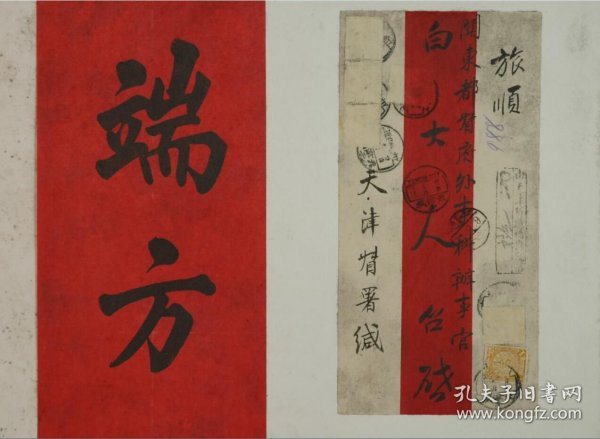 端方
旅順
1880
關東都督府外事科辦事官
白大人台啓
天津督署緘
孔夫子旧书网
www.kongfz.com